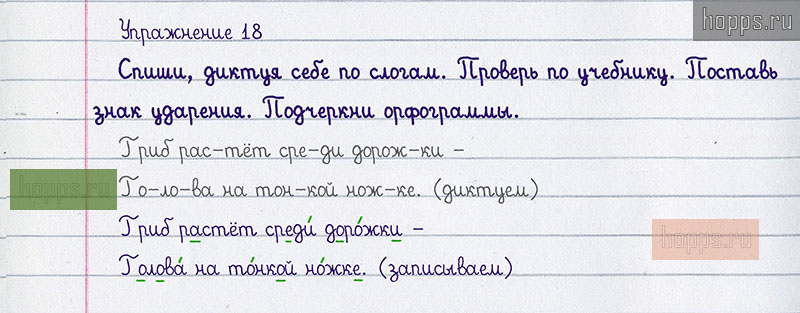 hopps.ru
Упражнение 18
Спиши, диктуя себе по слогам. Проверь по учебнику. Поставь
знак ударения. Подчеркни орфограммы.
Гриб рас-тёт сре-ди дорож-ки –
hopps.ru
Го-ло-ва на тон-кой нож-ке. (диктуем)
Гриб растёт среди́ доро́жки –
hopps.ru
Голова́ на то́нкой но́жке. (записываем)